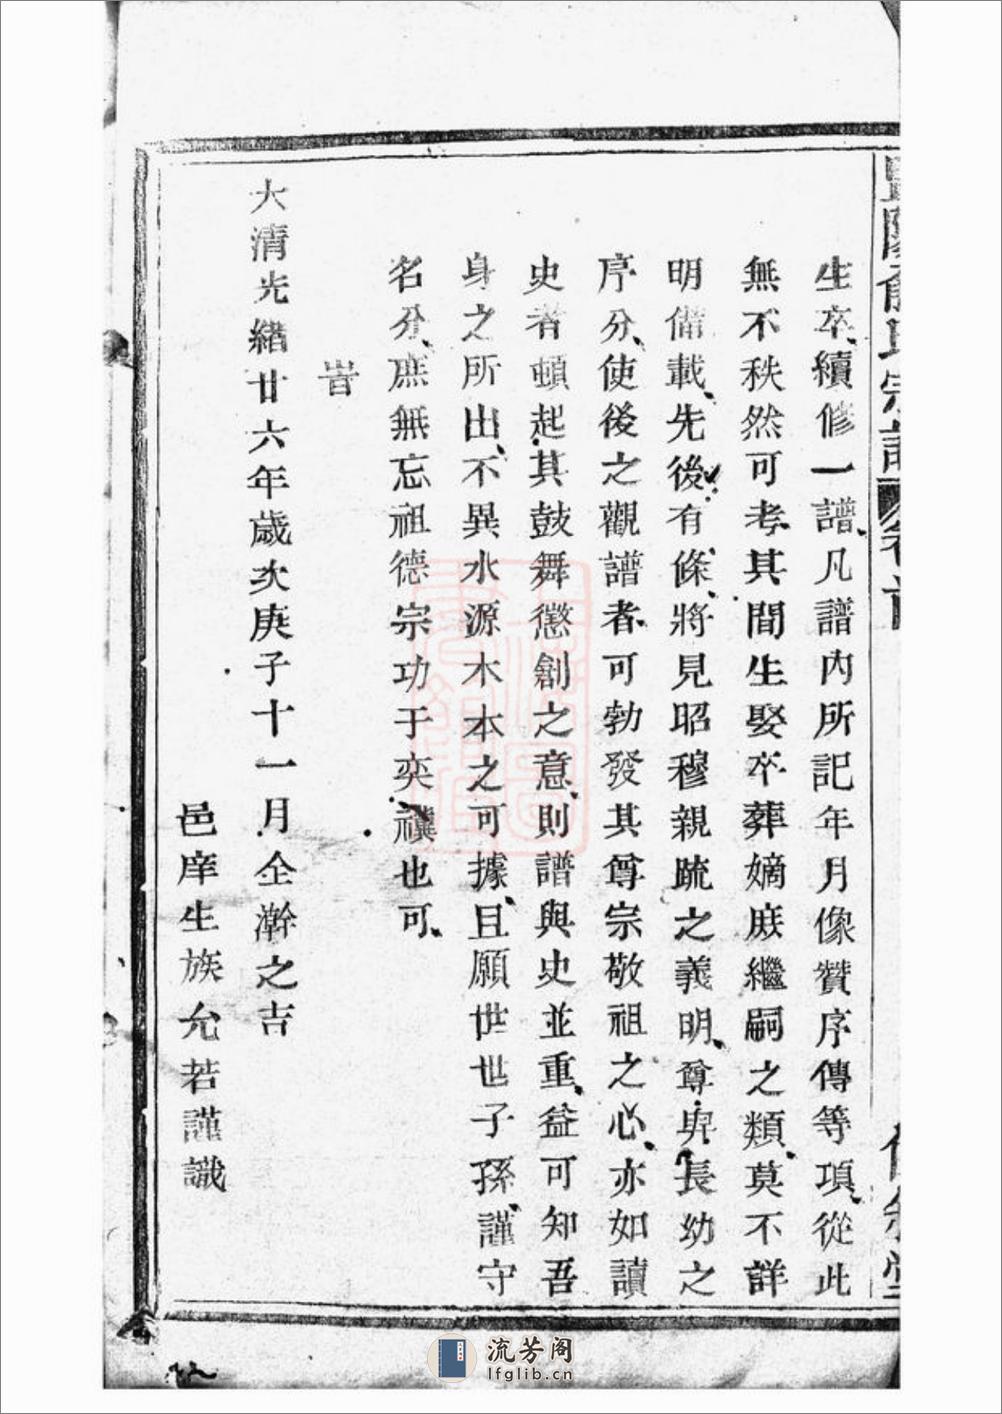 暨陽俞氏宗譜 卷首
生卒續修一譜凡譜內所記年月像贊序傳等項從此
無不秩然可考其間生娶卒葬嫡庶繼嗣之類莫不詳
明備載先後有條將見昭穆親疏之義明尊卑長幼之
序分使後之觀譜者可勃發其尊宗敬祖之心亦如讀
史者頓起其鼓舞懲創之意則譜與史並重益可知吾
身之所出不異水源木本之可據且願世世子孫謹守
名分庶無忘祖德宗功于奕禩也可
旹
大清光緒廿六年歲次庚子十一月仝澣之吉
邑庠生族允若謹識
流芳阁
lfglib.cn